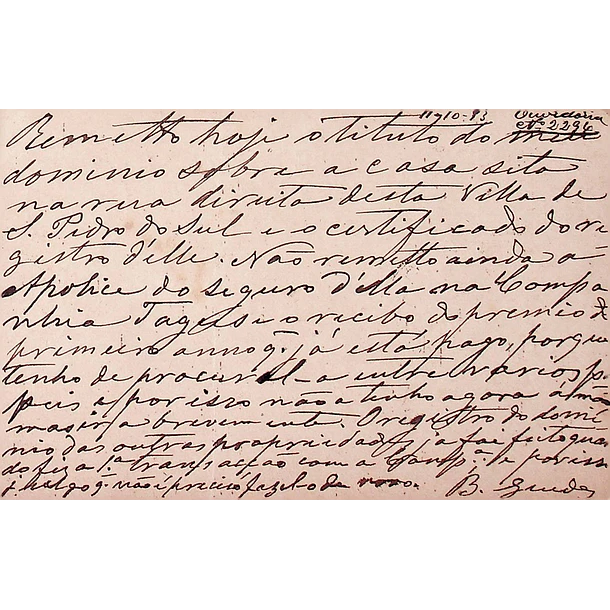 11-10-93 Ouvidoria
Nº 2296
Remetto hoje o titulo do meu
dominio sobre a casa sita
na rua direita desta Villa de
S. Pedro do Sul e o certificado do re
gistro d'elle. Não remetto ainda a
Apolice do seguro d'ella na Compa
nhia Tagus e o recibo do premio do
primeiro anno q. já está pago, porque
tenho de procural-a entre varios pa
peis e por isso não a tenho agora á mão
breve mente. O registro do domi
nio das outras propriedades já foi feito quan
do fiz a 1ª transacção com a Compª. e por isso
julgo q. não é preciso fazel-o de novo. B. Guedes